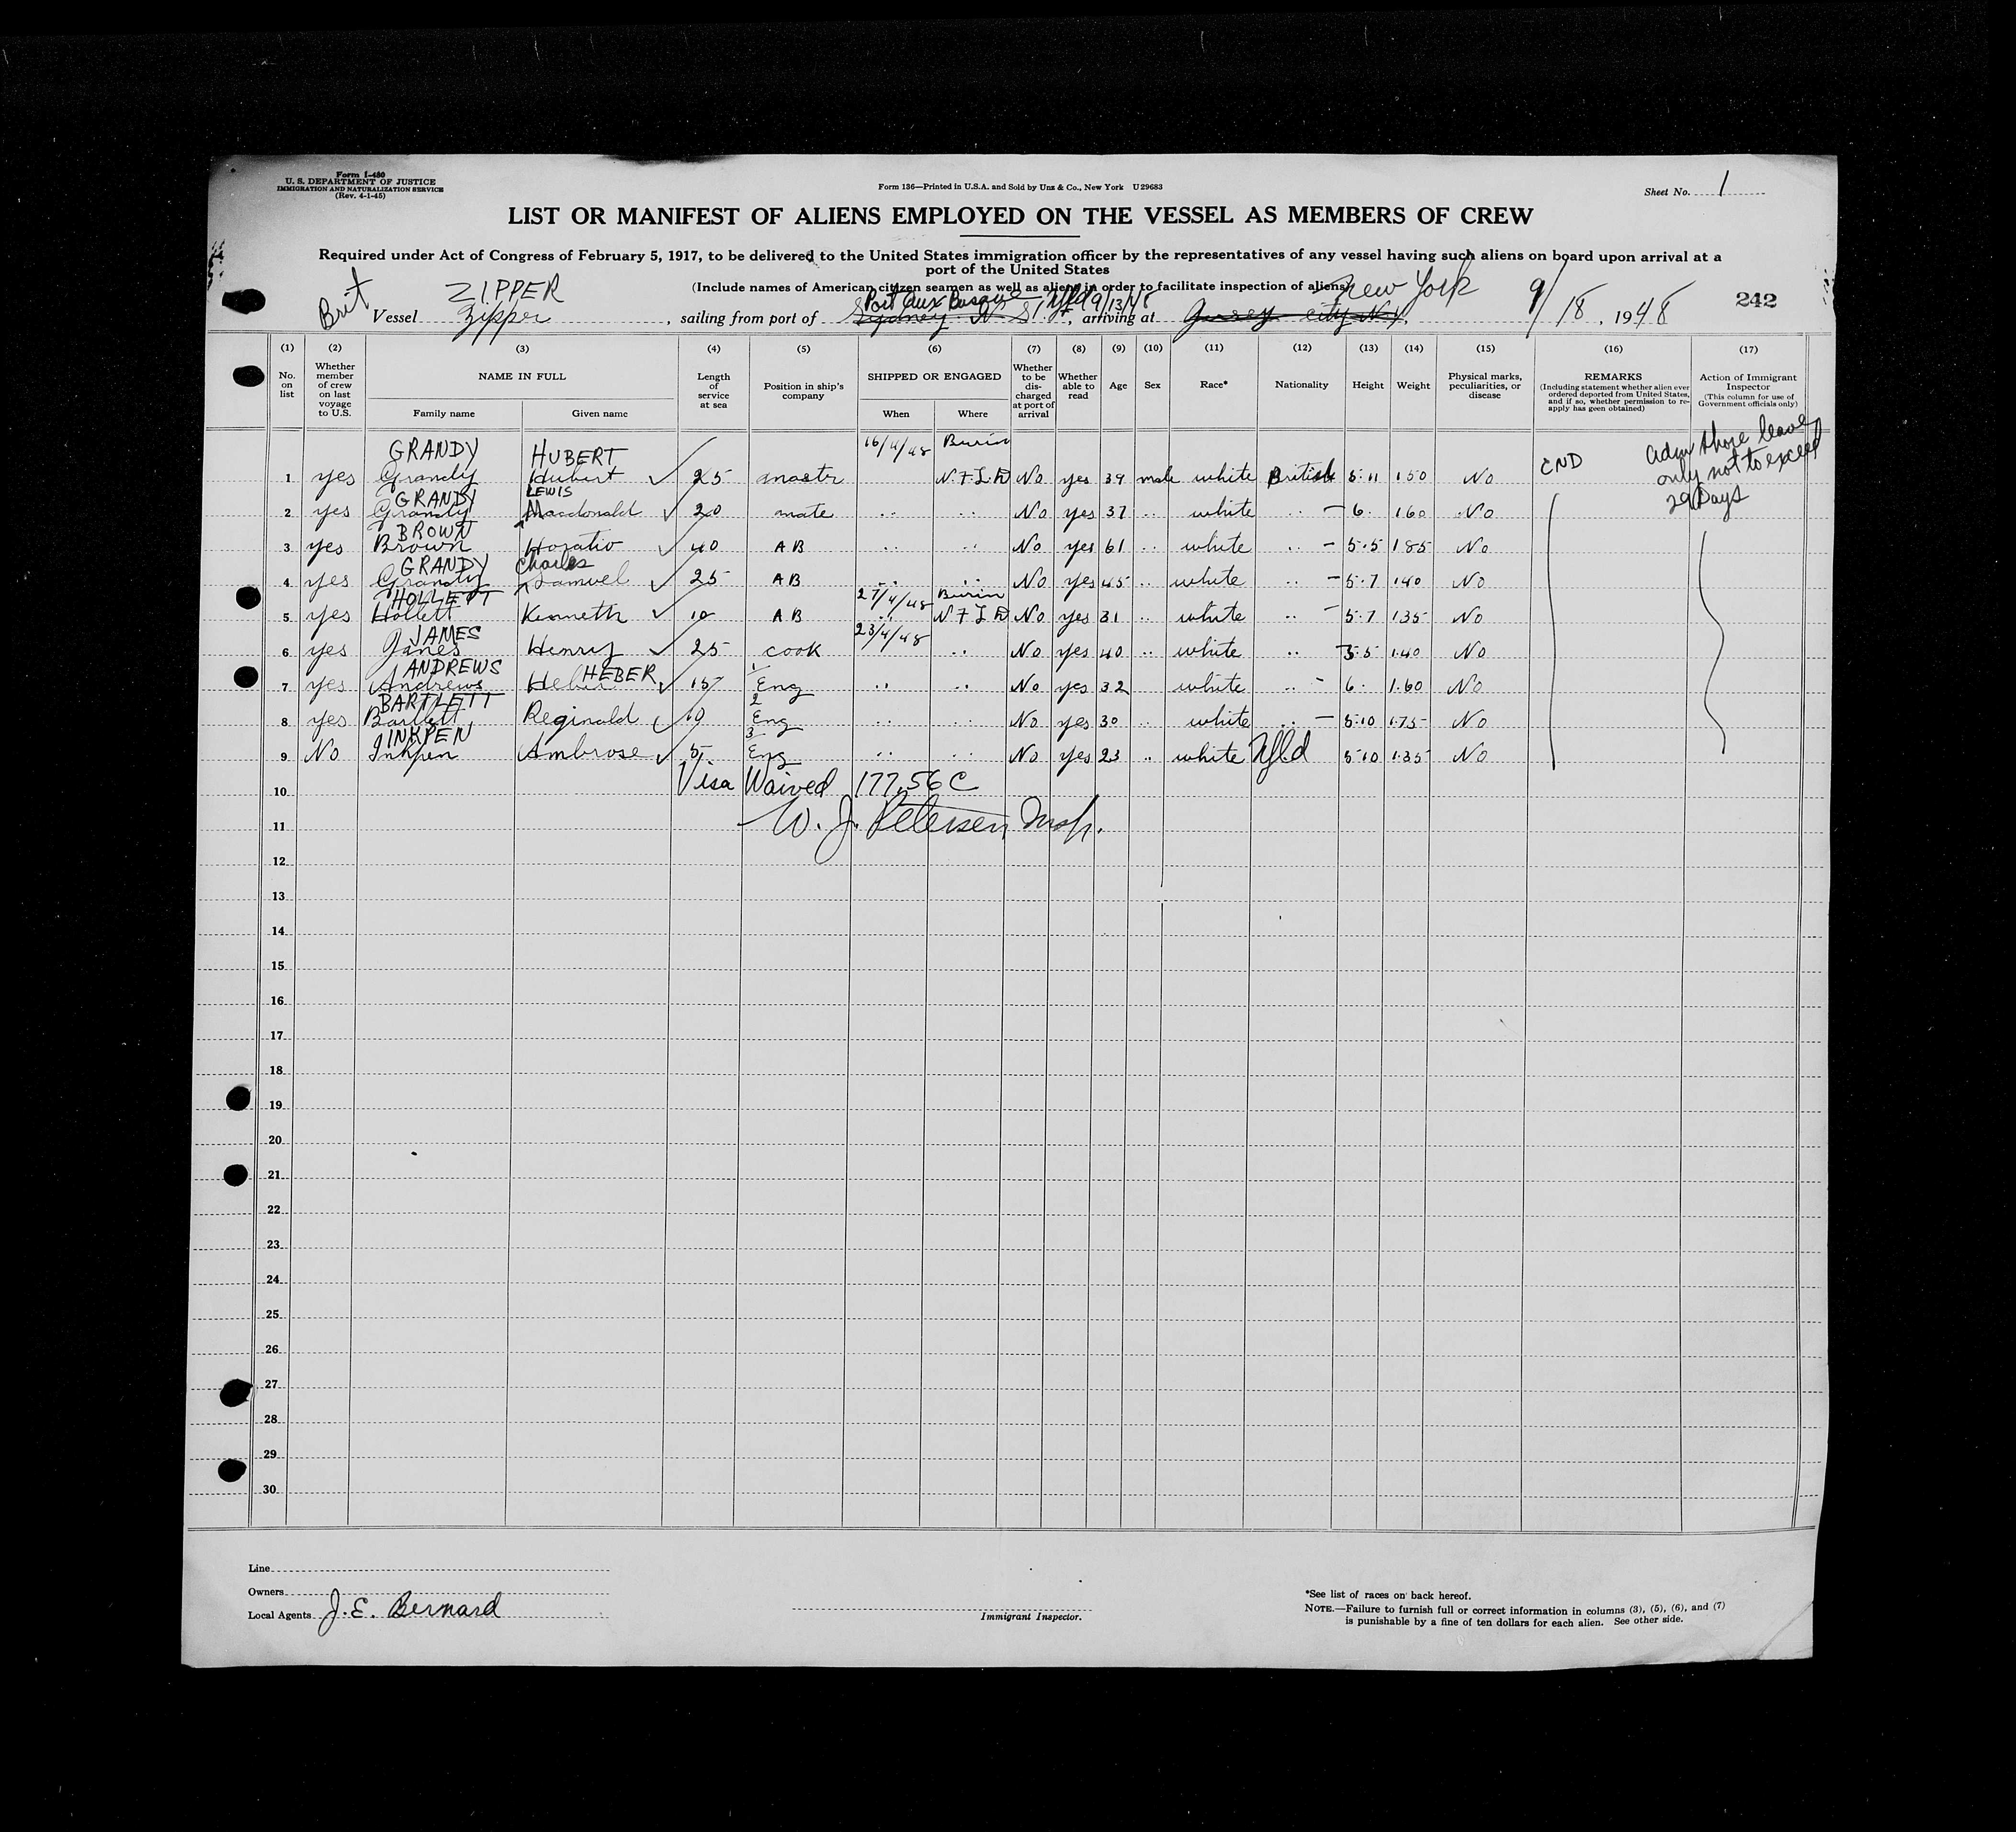 Form I-480
U. S. DEPARTMENT OF JUSTICE
IMMIGRATION AND NATURALIZATION SERVICE
(Rev. 4-1-45)
Form 136—Printed in U.S.A. and Sold by Unz & Co., New York U29683
Sheet No. 1
LIST OR MANIFEST OF ALIENS EMPLOYED ON THE VESSEL AS MEMBERS OF CREW
Required under Act of Congress of February 5, 1917, to be delivered to the United States immigration officer by the representatives of any vessel having such aliens on board upon arrival at a
port of the United States
(Include names of American citizen seamen as well as aliens in order to facilitate inspection of aliens)
ZIPPER Port Aux Basque Nfld 9/13/48 New York 242
Brit Vessel Zipper, sailing from port of Sydney N S, arriving at city N.Y. 9/18, 1948
(1) (2) (3) (4) (5) (6) (7) (8) (9) (10) (11) (12) (13) (14) (15) (16) (17)
No. on list
Whether member of crew on last voyage to U.S.
NAME IN FULL
Family name
Given name
Length of service at sea
Position in ship's company
SHIPPED OR ENGAGED
When
Where
Whether to be discharged at port of arrival
Whether able to read
Age
Sex
Race*
Nationality
Height
Weight
Physical marks, peculiarities, or disease
REMARKS
(Including statement whether alien ever ordered deported from United States, and if so, whether permission to re-apply has geen obtained)
Action of Immigrant Inspector
(This column for use of Government officials only)
GRANDY HUBERT 16/4/48 Burin
1 yes Grandy Hubert ✓ 25 master N.F.L.D No yes 39 male white British 5.11 150 No CND
adm shore leave
only not to exceed
29 Days
GRANDY LEWIS
2 yes Grandy Macdonald ✓ 20 mate .. .. No yes 37 .. white .. — 6. 160 No
BROWN
3 yes Brown Horatio ✓ 40 AB .. .. No yes 61 .. white .. — 5.5 185 No
GRANDY Charles
4 yes Grandy Samuel ✓ 25 AB .. .. No yes 45 .. white .. — 5.7 140 No
HOLLETT 27/4/48 Burin
5 yes Hollett Kenneth ✓ 10 AB .. N F L D No yes 31 .. white .. — 5.7 135 No
JAMES 23/4/48
6 yes Janes Henry ✓ 25 cook .. No yes 40 .. white .. — 5.5 140 No
ANDREWS HEBER 1
7 yes Andrews Heber ✓ 15 Eng .. .. No yes 32 white .. — 6. 160 No
BARTLETT 2
8 yes Bartlett Reginald ✓ 10 Eng .. .. No yes 30 .. white .. — 5.10 175 No
INKPEN 3
9 No Inkpen Ambrose ✓ 5 Eng .. .. No yes 23 .. white Nfld 5.10 135 No
10 Visa Waived 177.56 C
11 W. J. Petersen Insp.
12
13
14
15
16
17
18
19
20
21
22
23
24
25
26
27
28
29
30
Line
Owners
Local Agents J. E. Bernard
Immigrant Inspector.
*See list of races on back hereof.
NOTE.—Failure to furnish full or correct information in columns (3), (5), (6), and (7)
is punishable by a fine of ten dollars for each alien. See other side.